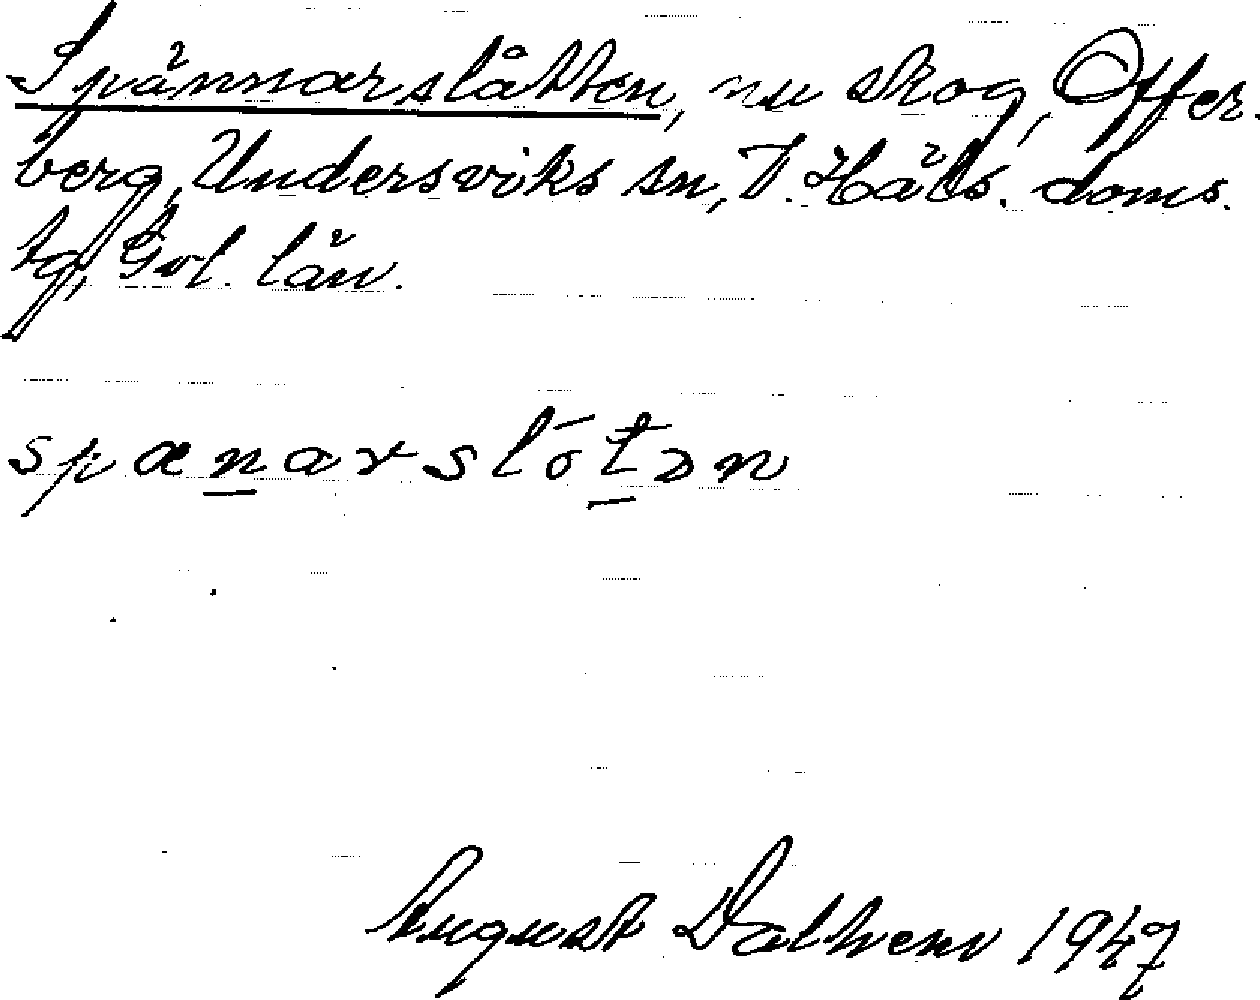 Spännarslåtten, nu skog, Offer-
berg, Undersviks sn, V. Häls. doms.
tg, Gvl. län.
spænarslótən
August Dalhem 1947